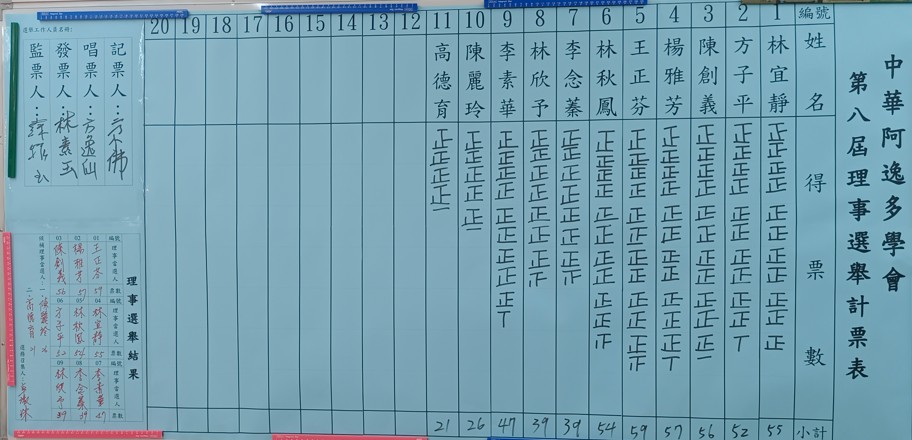 中華阿逸多學會
第八屆理事選舉計票表
編號
姓名
得票數
小計
1
林宜靜
正正正正正正正正正正正
55
2
方子平
正正正正正正正正正正丅
52
3
陳創義
正正正正正正正正正正正一
56
4
楊雅芳
正正正正正正正正正正正丅
57
5
王正芬
59
6
林秋鳳
54
7
李念蓁
39
8
林欣予
39
9
李素華
正正正正正正正正正丅
47
10
陳麗玲
正正正正正一
26
11
高德育
正正正正一
21
12
13
14
15
16
17
18
19
20
選務工作人員名冊:
記票人:
唱票人:方逸仙
發票人:林素玉
監票人:
理事選舉結果
編號 理事當選人 票數
01 王正芬 59
02 楊雅芳 57
03 陳創義 56
編號 理事當選人 票數
04 林宜靜 55
05 林秋鳳 54
06 方子平 52
編號 理事當選人 票數
07 李素華 47
08 李念蓁 39
09 林欣予 39
候補理事當選人:一.陳麗玲 26
二.高德育 21